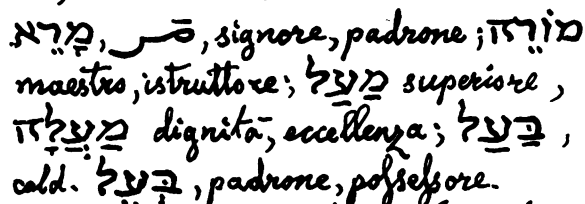 מָרֵא, , signore, padrone; מוֹרֶה
maestro, istruttore; מַעַל superiore,
מַעֲלָה dignità, eccellenza; בַּעַל,
cald. בְּעֵל, padrone, poſseſsore.